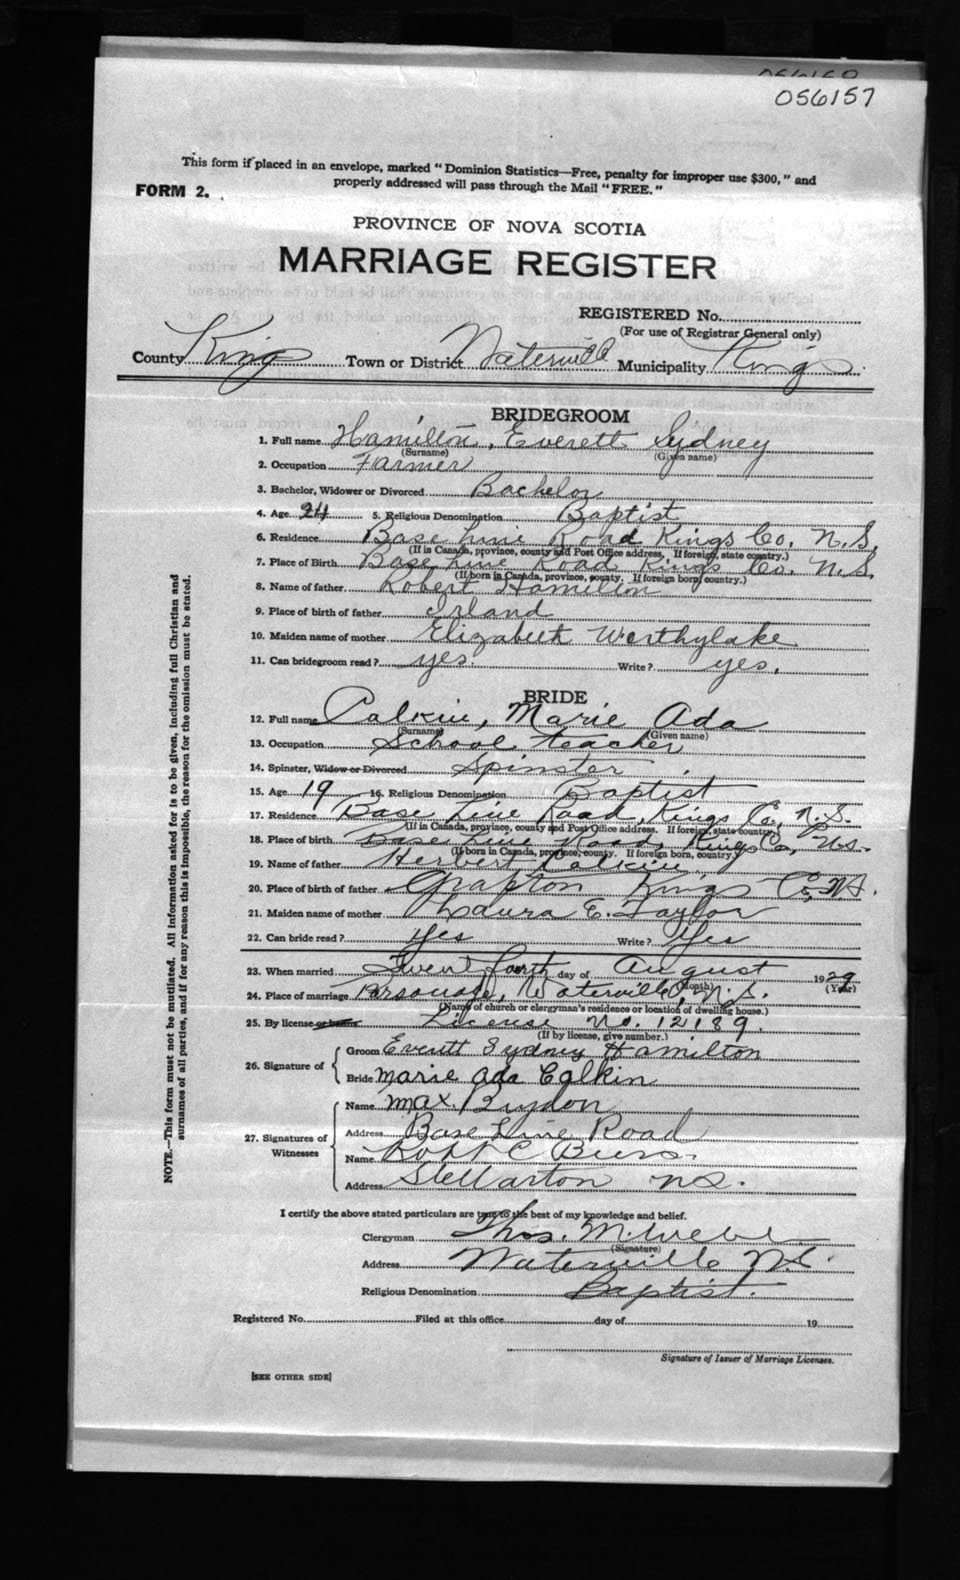 056157
This form if placed in an envelope, marked "Dominion Statistics—Free, penalty for improper use $300," and
properly addressed will pass through the Mail "FREE."
FORM 2.
PROVINCE OF NOVA SCOTIA
MARRIAGE REGISTER
REGISTERED No.
(For use of Registrar General only)
County Kings Town or District Waterville Municipality Kings
BRIDEGROOM
1. Full name Hamilton, Everett Sydney
(Surname) (Given name)
2. Occupation Farmer
3. Bachelor, Widower or Divorced Bachelor
4. Age 24 5. Religious Denomination Baptist
6. Residence Base Line Road Kings Co. N.S.
(If in Canada, province, county and Post Office address. If foreign, state country.)
7. Place of Birth Base Line Road Kings Co. N.S.
(If born in Canada, province, county. If foreign born, country.)
8. Name of father Robert Hamilton
9. Place of birth of father Irland
10. Maiden name of mother Elizabeth Worthylake
11. Can bridegroom read? yes. Write? yes.
BRIDE
12. Full name Calkin, Marie Ada
(Surname) (Given name)
13. Occupation School teacher
14. Spinster, Widow or Divorced Spinster
15. Age 19 16. Religious Denomination Baptist
17. Residence Base Line Road, Kings Co, N.S.
(If in Canada, province, county and Post Office address. If foreign, state country.)
18. Place of birth Base Line Road, Kings Co, N.S.
(If born in Canada, province, county. If foreign born, country.)
19. Name of father Herbert Calkin
20. Place of birth of father Grafton Kings Co, N.S.
21. Maiden name of mother Laura E. Taylor
22. Can bride read? Yes Write? Yes
23. When married day of August 1929
(Month) (Year)
24. Place of marriage Parsonage, Waterville, N.S.
(Name of church or clergyman's residence or location of dwelling house.)
25. By license or banns License No. 12189.
(If by license, give number.)
26. Signature of
Groom Everett Sydney Hamilton
Bride Marie Ada Calkin
27. Signatures of Witnesses
Name Max
Address Base Line Road
Name Robt C
Address Stellarton NS.
I certify the above stated particulars are true to the best of my knowledge and belief.
Clergyman Thos. M. Webb
(Signature)
Address Waterville N.S.
Religious Denomination Baptist.
Registered No. Filed at this office day of 19
Signature of Issuer of Marriage Licenses.
[SEE OTHER SIDE]
NOTE.—This form must not be mutilated. All information asked for is to be given, including full Christian and
surnames of all parties, and if for any reason this is impossible, the reason for the omission must be stated.